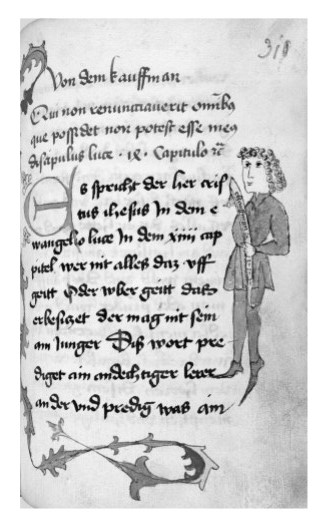 318
Von dem kauffman
Qui non renunctiaverit omnibꝫ
que possidet non potest esse meꝯ
discipulus luce · ix · Capitulo
Es spricht der her cris
tus ihesus In dem e
wangelio luce In dem xiiii cap
pitel wer nit alles daz vff
geitt Oder vber geitt das
er besiczet der mag nit sein
am Junger Diß wort pre
diget ain andechtiger lerer
an der vnd predig was ain